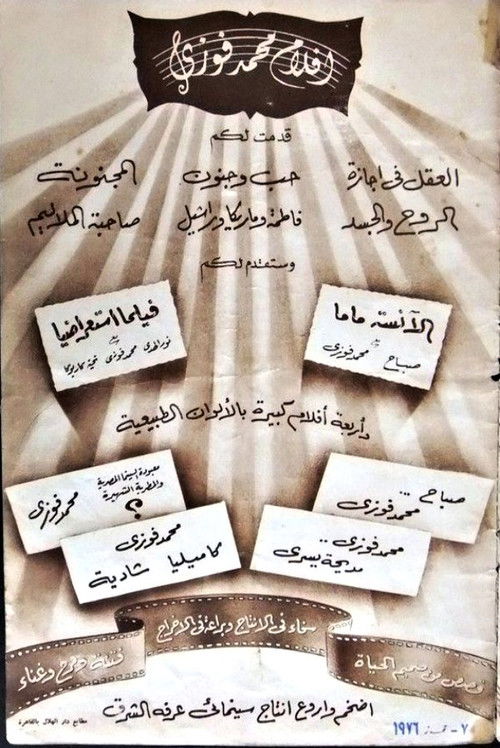 افلام محمد فوزى
قدمت لكم
العقل فى اجازة حب وجنون المجنونة
الروح والجسد فاطمة وماريكا وراشيل صاحبة الملاليم
وستقدم لكم
الآنسة ماما
صباح محمد فوزى
فيلما استعراضيا
نور الهدى محمد فوزى تحية كاريوكا
وأربعة أفلام كبيرة بالألوان الطبيعية
صباح ...
محمد فوزى
معبودة السينما المصرية
والمطربة الشهيرة
؟
محمد فوزى
محمد فوزى ..
مديحة يسرى
محمد فوزى
كاميليا شادية
سخاء فى الانتاج وبراعة فى الاخراج
قصص من صميم الحياة
فتنة ومرح وغناء
اضخم واروع انتاج سينمائى عرفه الشرق
مطابع دار الهلال بالقاهرة
١٩٧٦